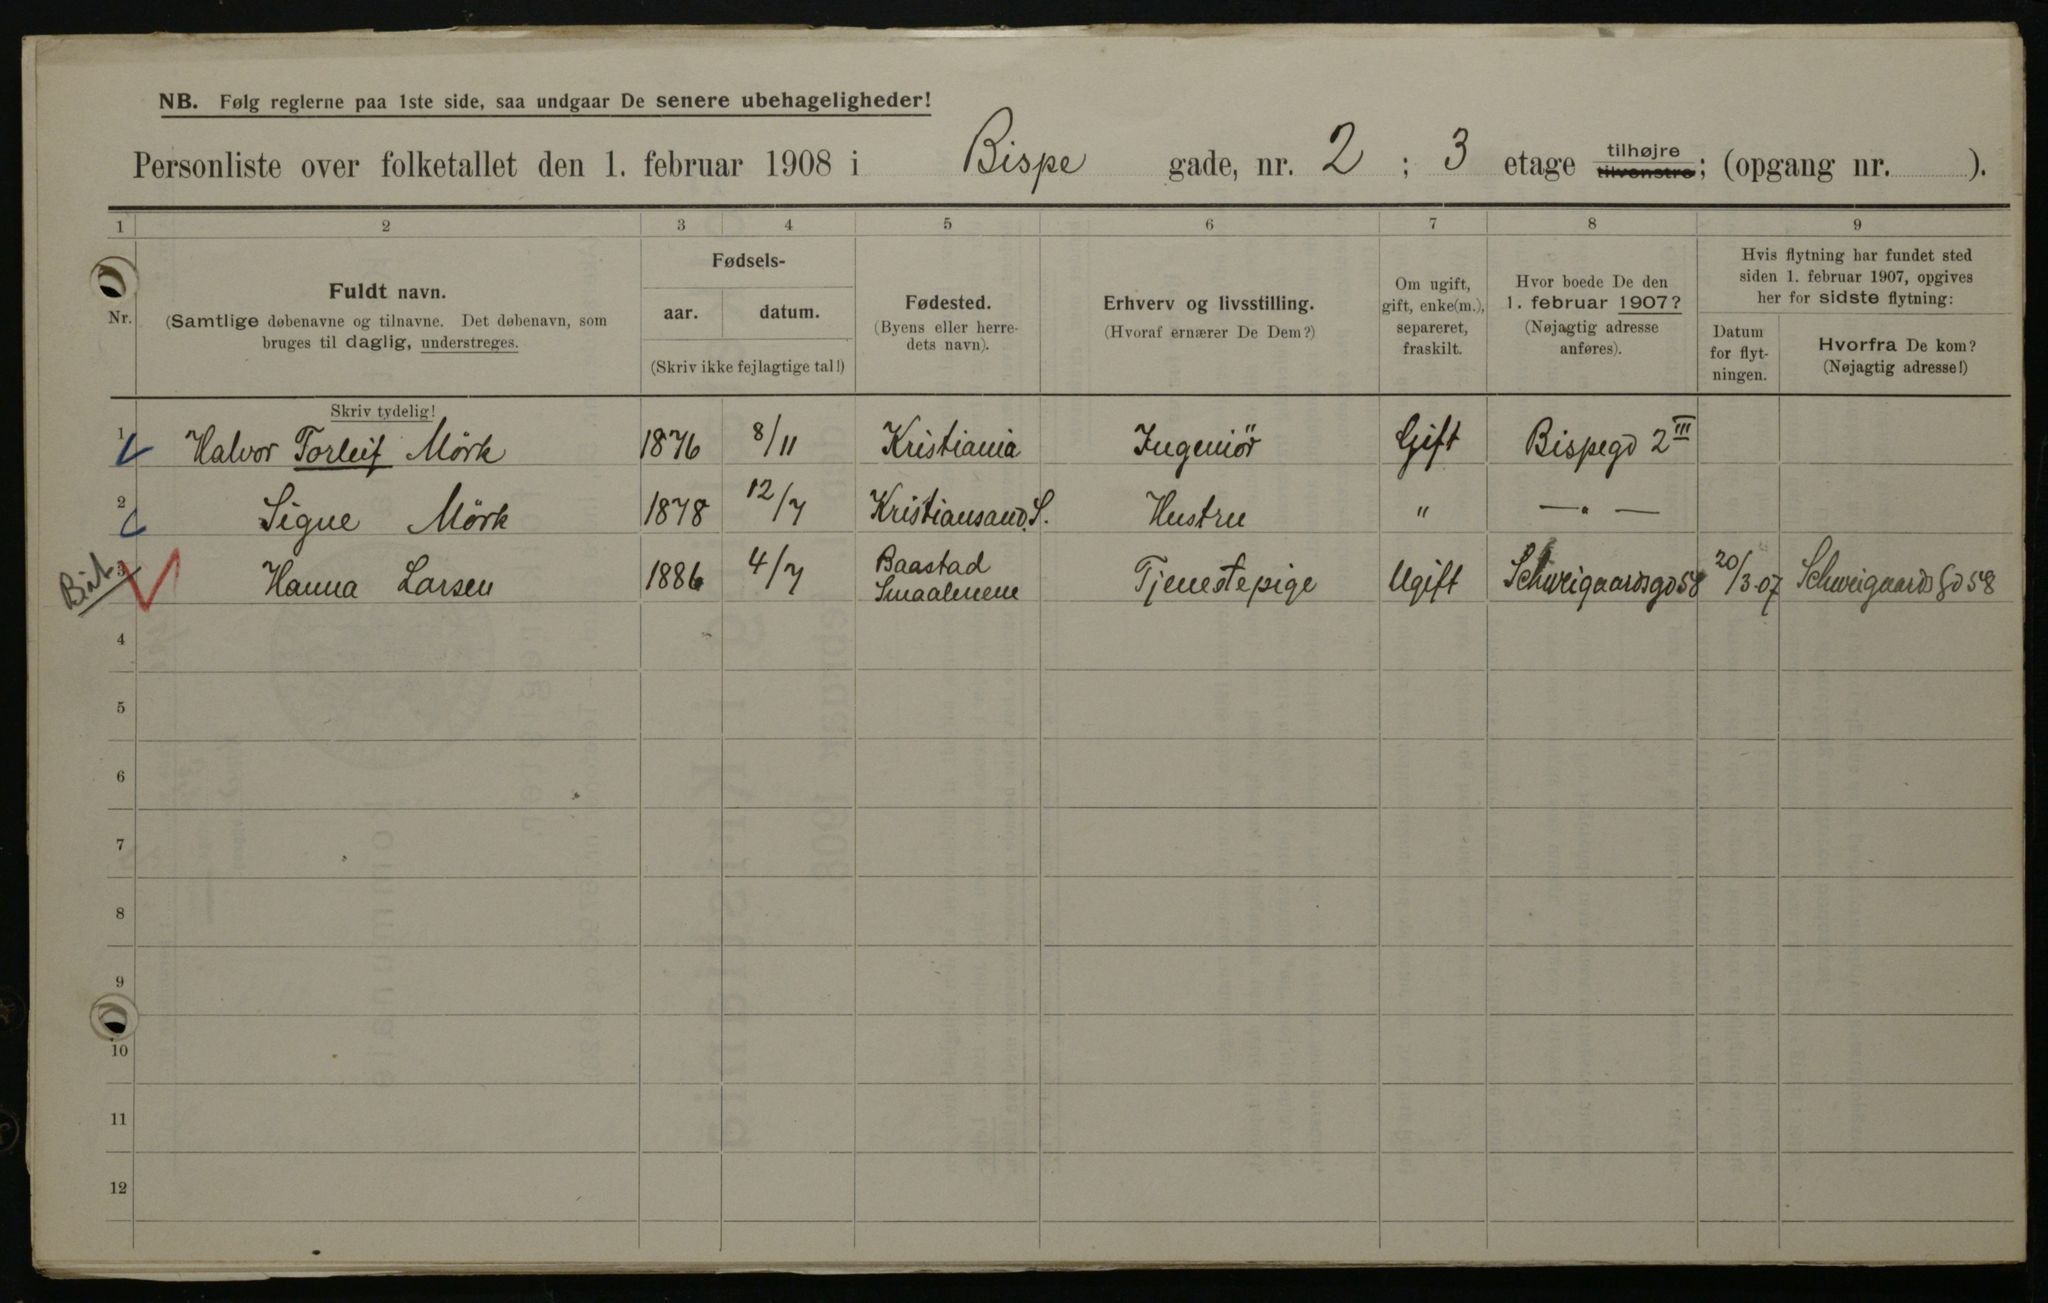 NB. Følg reglerne paa 1ste side, saa undgaar De senere ubehageligheder!
Personliste over folketallet den 1. februar 1908 i Bispe gade, nr. 2 ; 3 etage tilhøjre tilvenstre; (opgang nr. ).
1 2 3 4 5 6 7 8 9
Nr.
Fuldt navn.
(Samtlige døbenavne og tilnavne. Det døbenavn, som
bruges til daglig, understreges.
Skriv tydelig!
Fødsels-
aar. datum.
(Skriv ikke fejlagtige tal!)
Fødested.
(Byens eller herre-
dets navn).
Erhverv og livsstilling.
(Hvoraf ernærer De Dem?)
Om ugift,
gift, enke(m.),
separeret,
fraskilt.
Hvor boede De den
1. februar 1907?
(Nøjagtig adresse
anføres).
Hvis flytning har fundet sted
siden 1. februar 1907, opgives
her for sidste flytning:
Datum
for flyt-
ningen.
Hvorfra De kom?
(Nøjagtig adresse!)
1 Halvor Torleif Mörk 1876 8/11 Kristiania Ingeniör Gift Bispegd 2 III
2 Signe Mörk 1878 12/7 Kristiansand S. Hustru " — " —
3 Hanna Larsen 1886 4/7 Baastad Smaalenene Tjenestepige Ugift Schweigaardsgd 58 20/3.07 Schweigaards gd 58
4
5
6
7
8
9
10
11
12